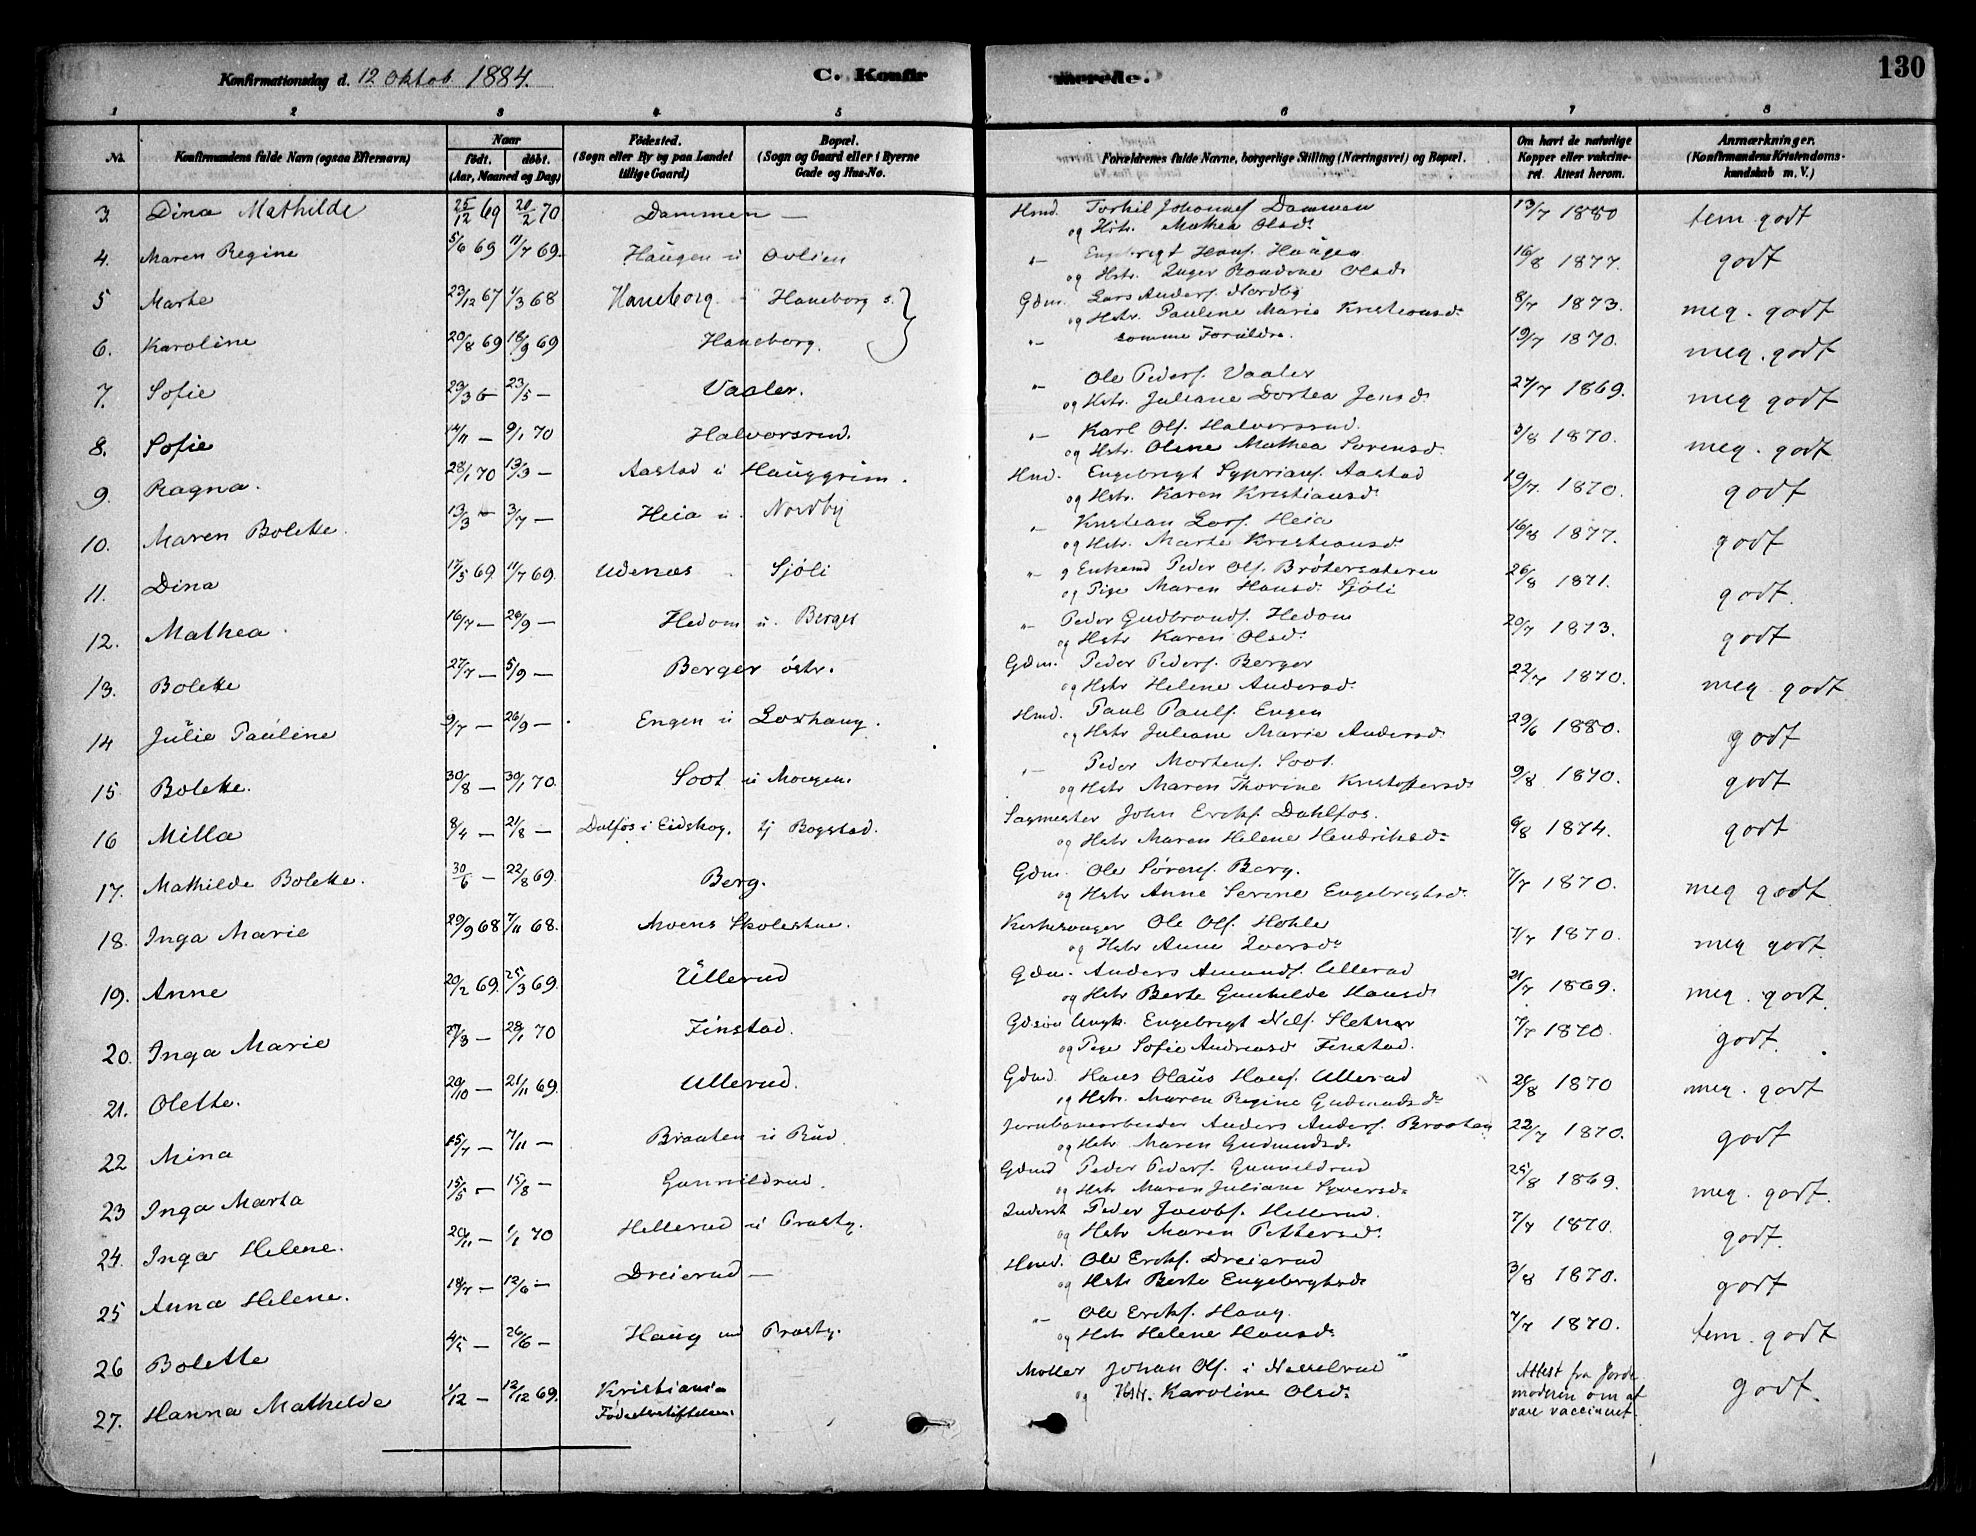 130
Konfirmationsdag d. 12 Oktob. 1884.
C. Konfirmerede.
1 2 3 4 5 6 7 8
No. Konfirmandens fulde Navn (ogsaa Efternavn) Naar født. døbt. (Aar, Maaned og Dag) Fødested. (Sogn eller By og paa Landet tillige Gaard) Bopæl. (Sogn og Gaard eller i Byerne Gade og Hus-No. Forældrenes fulde Navne, borgerlige Stilling (Næringsvei) og Bopæl. Om havt de naturlige Kopper eller vakcineret. Attest herom. Anmærkninger. (Konfirmandens Kristendomskundskab m. V.)
3. Dina Mathilde 25/12 69 20/2 70 Dammen — Hmd. Torkil Johannes. Dammen 13/7 1880 tem. godt
og Hstr. Mathea Olsdr.
4. Maren Regine 5/6 69 11/7 69. Haugen u Ovlien " Engebrigt Hans. Haugen 16/8 1877. godt
og Hstr. Inger Randine Olsdr
5 Marte 23/12 67 1/3 68 Haneborg " Haneborg s. Gdm. Lars Anders. Nordby 8/7 1873. meg. godt
og Hstr. Pauline Marie Kristiansdr
6. Karoline 20/8 69 18/9 69 Haneborg. " samme Forældre. 19/7 1870. meg. godt
7. Sofie 29/3 6- 23/5 — Vaaler. " Ole Peders. Vaaler 27/7 1869. meg godt
og Hstr. Juliane Dortea Jensdr
8. Sofie 14/11 — 9/1 70 Halvorsrud. " Karl Ols. Halvorsrud. 3/8 1870. meg. godt
og Hstr. Oline Mathea Sorensdr
9. Ragna. 28/1 70 13/3 — Aastad u Hauggrim. Hmd. Engebrigt Syprians. Aastad 19/7. 1870. godt
og Hstr. Karen Kristiansdr
10. Maren Bolette. 13/3 3/7 — Heia u. Nordby " Kristian Lars. Heia 16/8 1877. godt
og Hstr. Marte Kristiansdr
11. Dina 17/5 69. 11/7 69. Udenæs Sjöli " Enkemd Peder Ols. Brötersæteren 26/8 1871. godt.
og Pige Maren Hansdr Sjöli
12. Mathea. 16/7 — 26/9 — Hedom u. Berger " Peder Gudbrands. Hedom 20/7 1873. godt
og Hstr Karen Olsdr
13. Bolette 27/7 — 5/9 — Berger östr. Gdm. Peder Peders. Berger 22/7 1870. meg. godt
og Hstr Helene Andersdr.
14 Julie Pauline 9/7 — 26/9 — Engen u Loshaug. Hmd. Paul Pauls. Engen 29/6 1880. godt
og Hstr Juliane Marie Andersdr
15 Bolette. 30/8 — 30/1 70. Soot u Moegen. " Peder Mortens. Soot. 9/8 1870. godt
og Hstr Maren Thorine Kristoffersdr
16 Milla 8/4 — 21/8 — Dalfos i Eidskog. Bogstad. Sagmester John Ericks. Dahlfos. 6/8 1874. godt
og Hstr Maren Helene Hendriksdr
17. Mathilde Bolette. 30/6 — 22/8 69. Berg. Gdm. Ole Sörens. Berg. 7/7 1870. meg godt
og Hstr Anne Serine Engebrigtsdr.
18. Inga Marie 29/9 68 7/11 68. Moens Skolestue. Kirkesanger Ole Ols. Hohle 7/7 1870. meg godt
og Hstr Anne Iversdr
19. Anne 20/2 69. 25/3 69. Ullerud Gdm. Anders Amunds. Ullerud 21/7 1869. meg. godt.
og Hstr Berte Gunhilde Hansdr
20. Inga Marie 27/3 — 28/1 70 Finstad. Gdsön Ungk. Engebrigt Nils. Sletner 7/7 1870. godt.
og Pige Sofie Andreasd Finstad.
21. Olette. 20/10 — 21/11 69. Ullerud. Gdmd. Hans Olaus Hans. Ullerud 25/8 1870 meg. godt
og Hstr. Maren Regine Gudmundsdr
22 Mina 15/7 — 7/11 — Braaten u Rud. Jernbanearbeider Anders Anders. Braaten 22/7 1870. godt
og Hstr Maren Gudmundsdr.
23 Inga Marta 15/5 — 15/8 — Gunnildrud. Gdmd Peder Peders. Gunnildrud 25/8 1869. meg. godt.
og Hstr Maren Juliane Syversdr
24. Inga Helene. 20/11 — 1/1 70 Hellerud u Prestg. Inderst Peder Jacobs. Hellerud. 7/7 1870. godt.
og Hstr Maren Pettersdr.
25 Anna Helene. 18/7 — 12/6 — Dreierud — Hmd. Ole Ericks. Dreierud 3/8 1870. godt
og Hstr Berte Engebrigtsdr
26 Bolette 4/5 — 26/6 — Haug und Prestg. " Ole Ericks. Haug. 7/7 1870. tem. godt
og Hstr Helene Hansdr
27. Hanna Mathilde 1/12 — 12/12 69. Kristiania Fødselsstiftelsen. Møller Johan Ols. i Nesselrud Attest fra Jordemoderen om at godt.
og Hstr. Karoline Olsdr. være vaccineret.